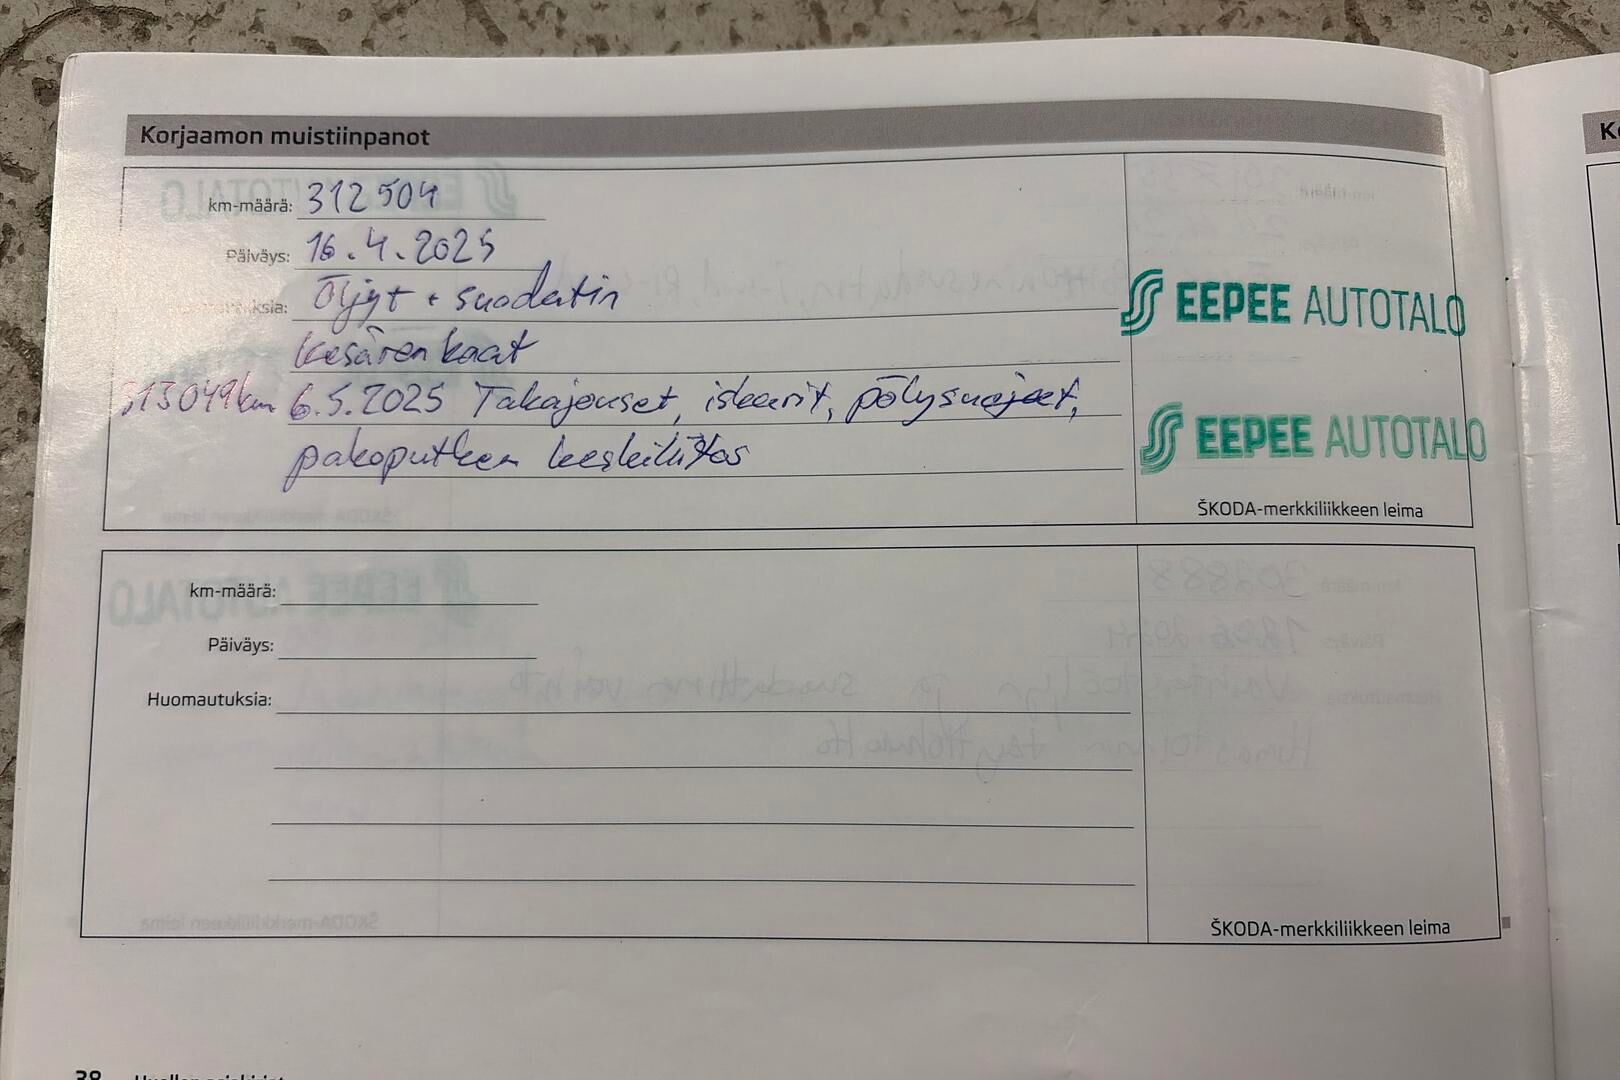 Korjaamon muistiinpanot
km-määrä: 312 504
Päiväys: 16.4.2025
Öljyt + suodatin
Kesärenkaat
313049km 6.5.2025 Takajouset, iskarit, pölysuojat,
pakoputken keskiliitos
EEPEE AUTOTALO
EEPEE AUTOTALO
ŠKODA-merkkiliikkeen leima
km-määrä:
Päiväys:
Huomautuksia:
ŠKODA-merkkiliikkeen leima
38